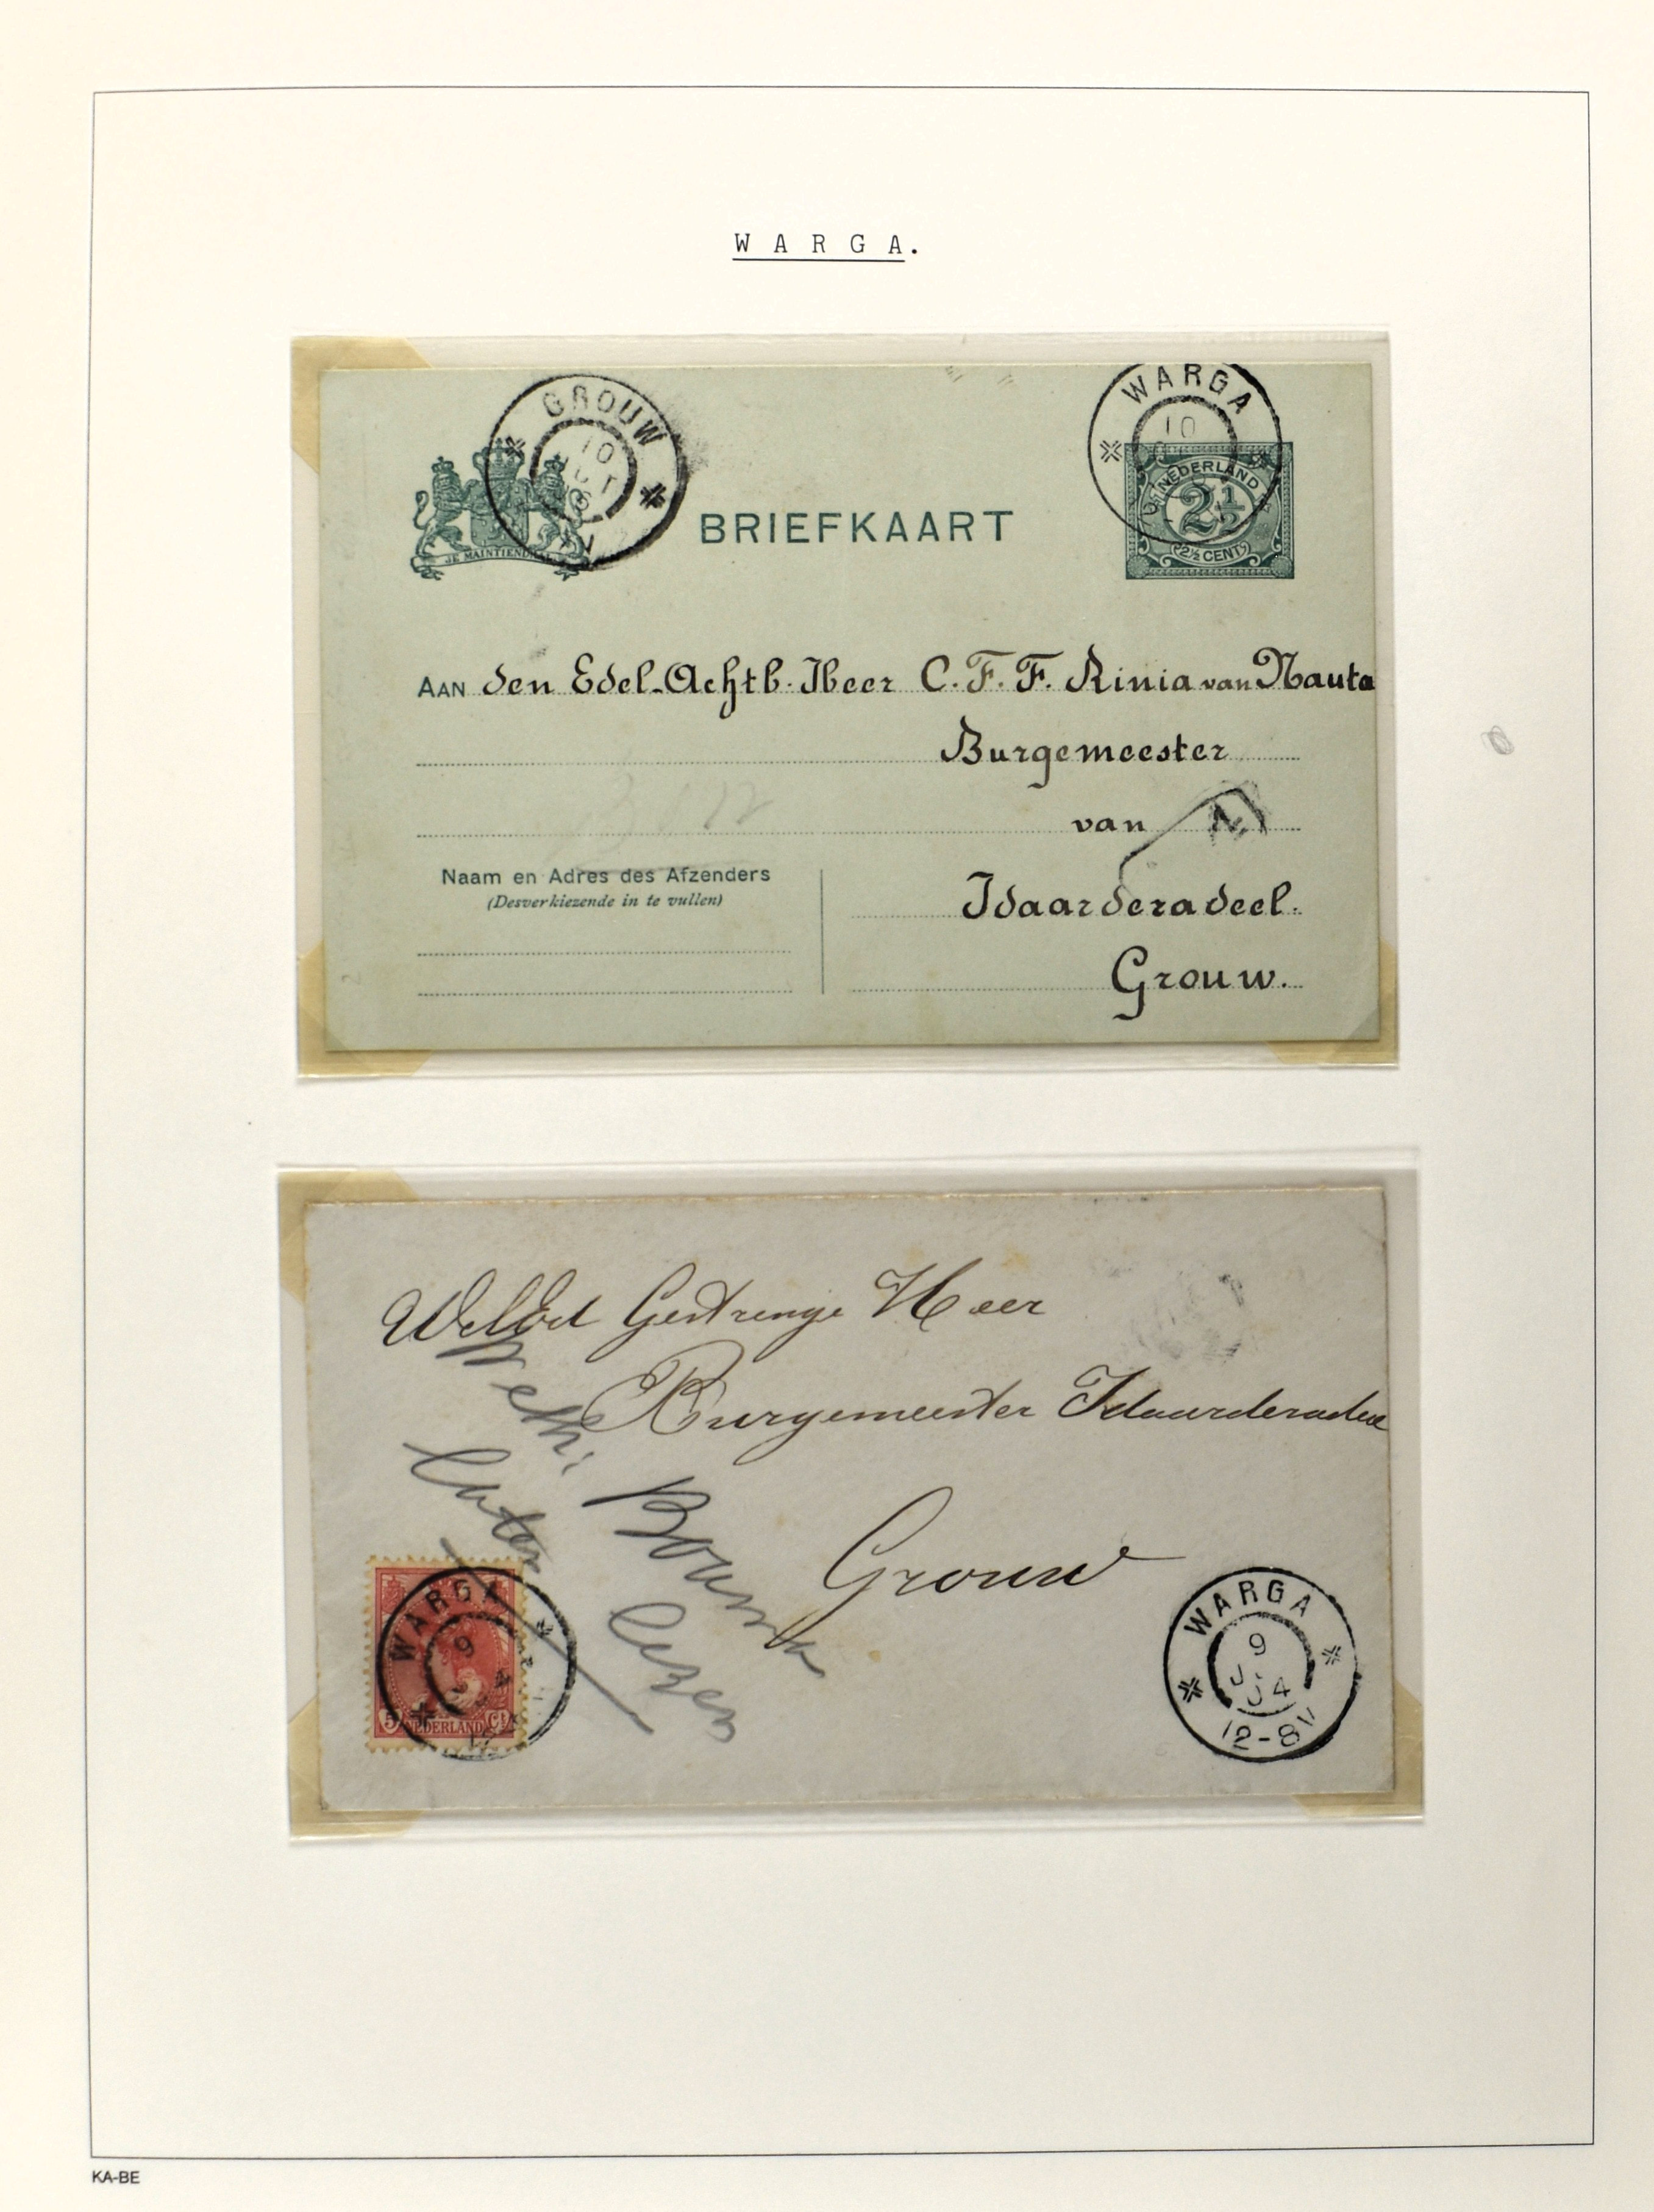 WARGA.
GROUW
10
WARGA
10
JE MAINTIENDRAI
BRIEFKAART
NEDERLAND
2½
2½ CENT
AAN den Edel-Achtb. Heer C. F. F. Rinia van Nauta
Burgemeester
van
Idaarderadeel.
Grouw.
Naam en Adres des Afzenders
(Desverkiezende in te vullen)
WelEd Gestrenge Heer
Burgemeester Idaarderadeel
Grouw
Weth: Bouma
laten lezen
WARGA
9
5 NEDERLAND Ct
WARGA
9
04
12-8V
KA-BE